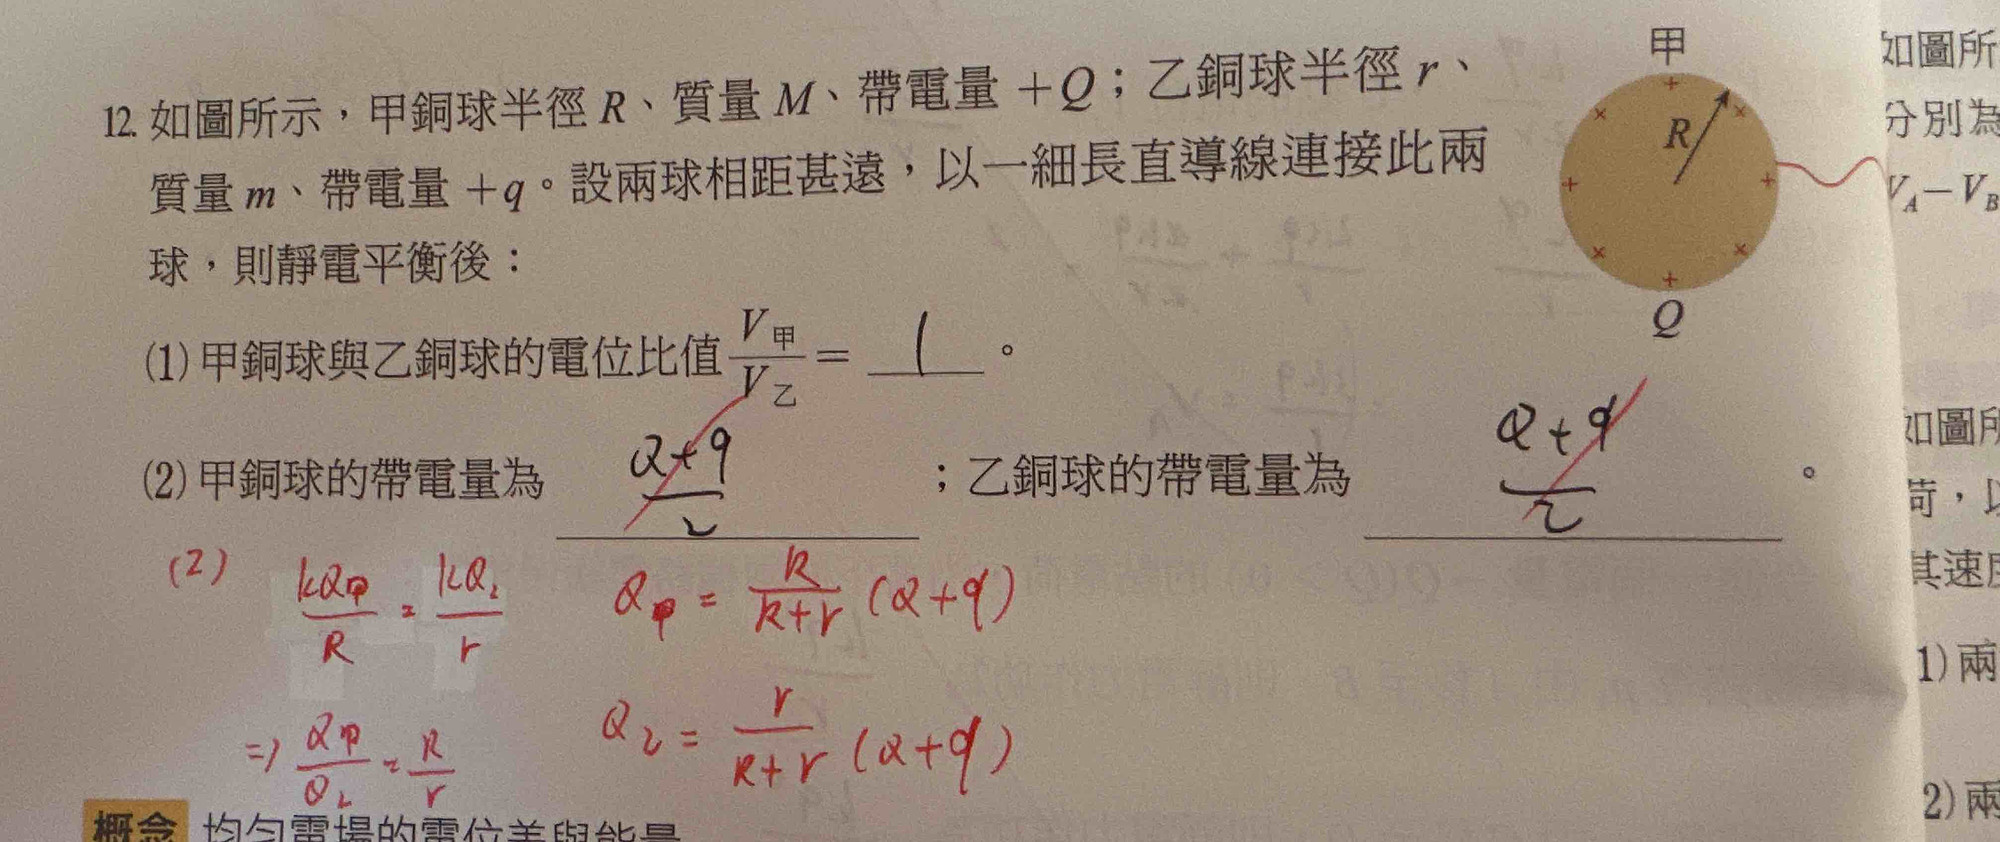 12. 如圖所示，甲銅球半徑 R、質量 M、帶電量 +Q；乙銅球半徑 r、
質量 m、帶電量 +q。設兩球相距甚遠，以一細長直導線連接此兩
球，則靜電平衡後：
(1) 甲銅球與乙銅球的電位比值 V甲/V乙 = 1 。
(2) 甲銅球的帶電量為 (Q+q)/2 ；乙銅球的帶電量為 (Q+q)/2 。
(2) kQ甲/R = kQ乙/r
Q甲 = R/(R+r) (Q+q)
=> Q甲/Q乙 = R/r
Q乙 = r/(R+r) (Q+q)
概念 均勻電場的電位差與能量
甲
R
Q
如圖所
分別為
VA－VB
如圖所
荷，以
其速度
1) 兩
2) 兩